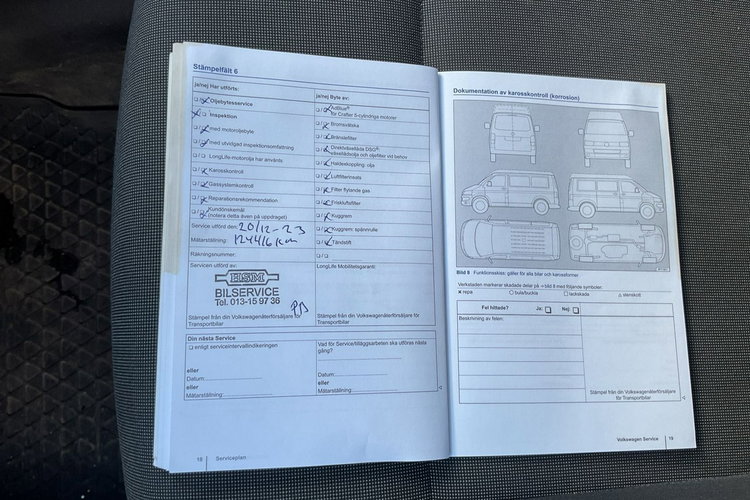 Stämpelfält 6
ja/nej Har utförts:
Oljebytesservice
Inspektion
med motoroljebyte
med utvidgad inspektionsomfattning
LongLife-motorolja har använts
Karosskontroll
Gassystemkontroll
Reparationsrekommendation
Kundönskemål
(notera detta även på uppdraget)
Service utförd den: 20/12-23
Mätarställning: 124416 km
Räkningsnummer:
Servicen utförd av:
HSM
BILSERVICE
Tel. 013-15 97 36
Stämpel från din Volkswagenåterförsäljare för
Transportbilar
ja/nej Byte av:
AdBlue®
för Crafter 5-cylindriga motorer
Bromsvätska
Bränslefilter
Direktväxellåda DSG®:
växellådsolja och oljefilter vid behov
Haldexkoppling: olja
Luftfilterinsats
Filter flytande gas
Friskluftsfilter
Kuggrem
Kuggrem: spännrulle
Tändstift
LongLife Mobilitetsgaranti:
Stämpel från din Volkswagenåterförsäljare för
Transportbilar
Din nästa Service
enligt serviceintervallindikeringen
eller
Datum:
eller
Mätarställning:
Vad för Service/tilläggsarbeten ska utföras nästa
gång?
Datum:
eller
Mätarställning:
18 Serviceplan
Dokumentation av karosskontroll (korrosion)
Bild 8 Funktionsskiss: gäller för alla bilar och karossformer
Verkstaden markerar skadade delar på ⇒ bild 8 med följande symboler:
× repa ○ bula/buckla □ lackskada △ stenskott
Fel hittade? Ja: Nej:
Beskrivning av felen:
Stämpel från din Volkswagenåterförsäljare
för Transportbilar
Volkswagen Service 19